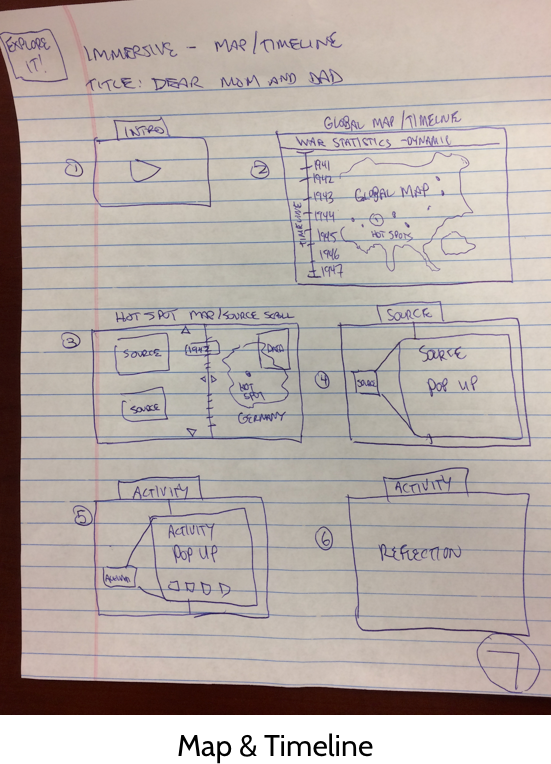 EXPLORE IT!
IMMERSIVE - MAP/TIMELINE
TITLE: DEAR MOM AND DAD
1
INTRO
2
GLOBAL MAP/TIMELINE
WAR STATISTICS - DYNAMIC
TIMELINE
1941
1942
1943
1944
1945
1946
1947
GLOBAL MAP
HOT SPOTS
3
HOT SPOT MAP/SOURCE SCROLL
SOURCE
SOURCE
1942
DATA
HOT
SPOT
GERMANY
4
SOURCE
SOURCE
SOURCE
POP UP
5
ACTIVITY
ACTIVITY
POP UP
6
ACTIVITY
REFLECTION
7
Map & Timeline